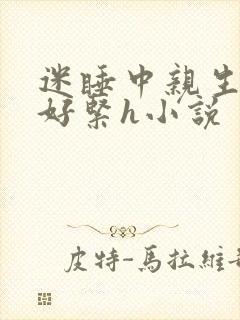 迷睡中親生
好緊h小説
皮特-馬拉維